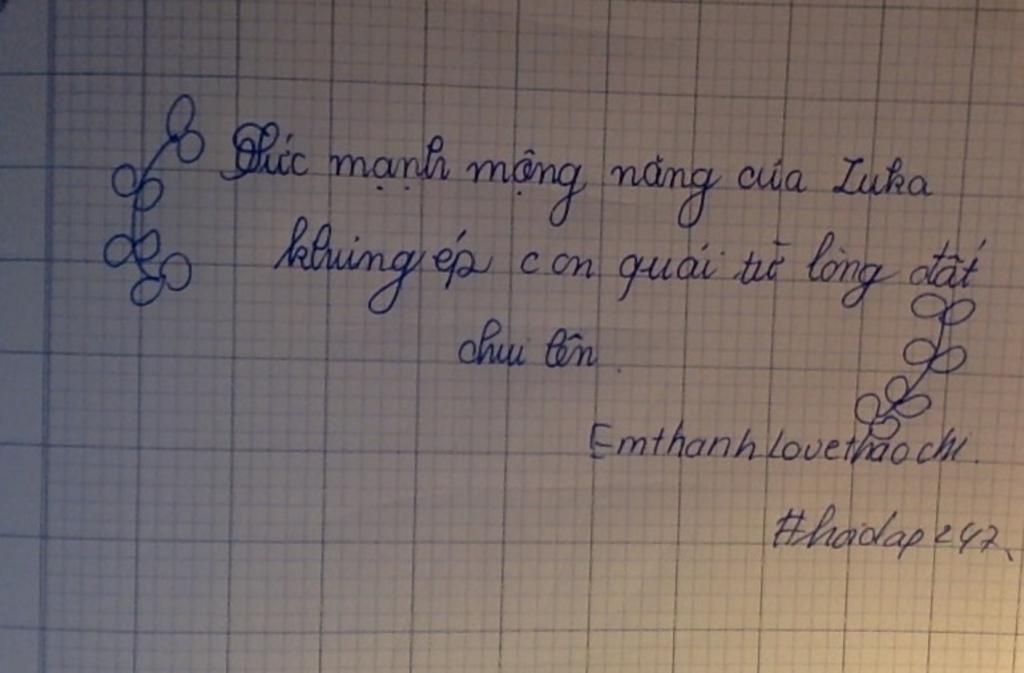 Sức mạnh mộng năng của Luka
khủng ép con quái từ lòng đất
chui lên.
Emthanhlovethaochi.
#hoidap247